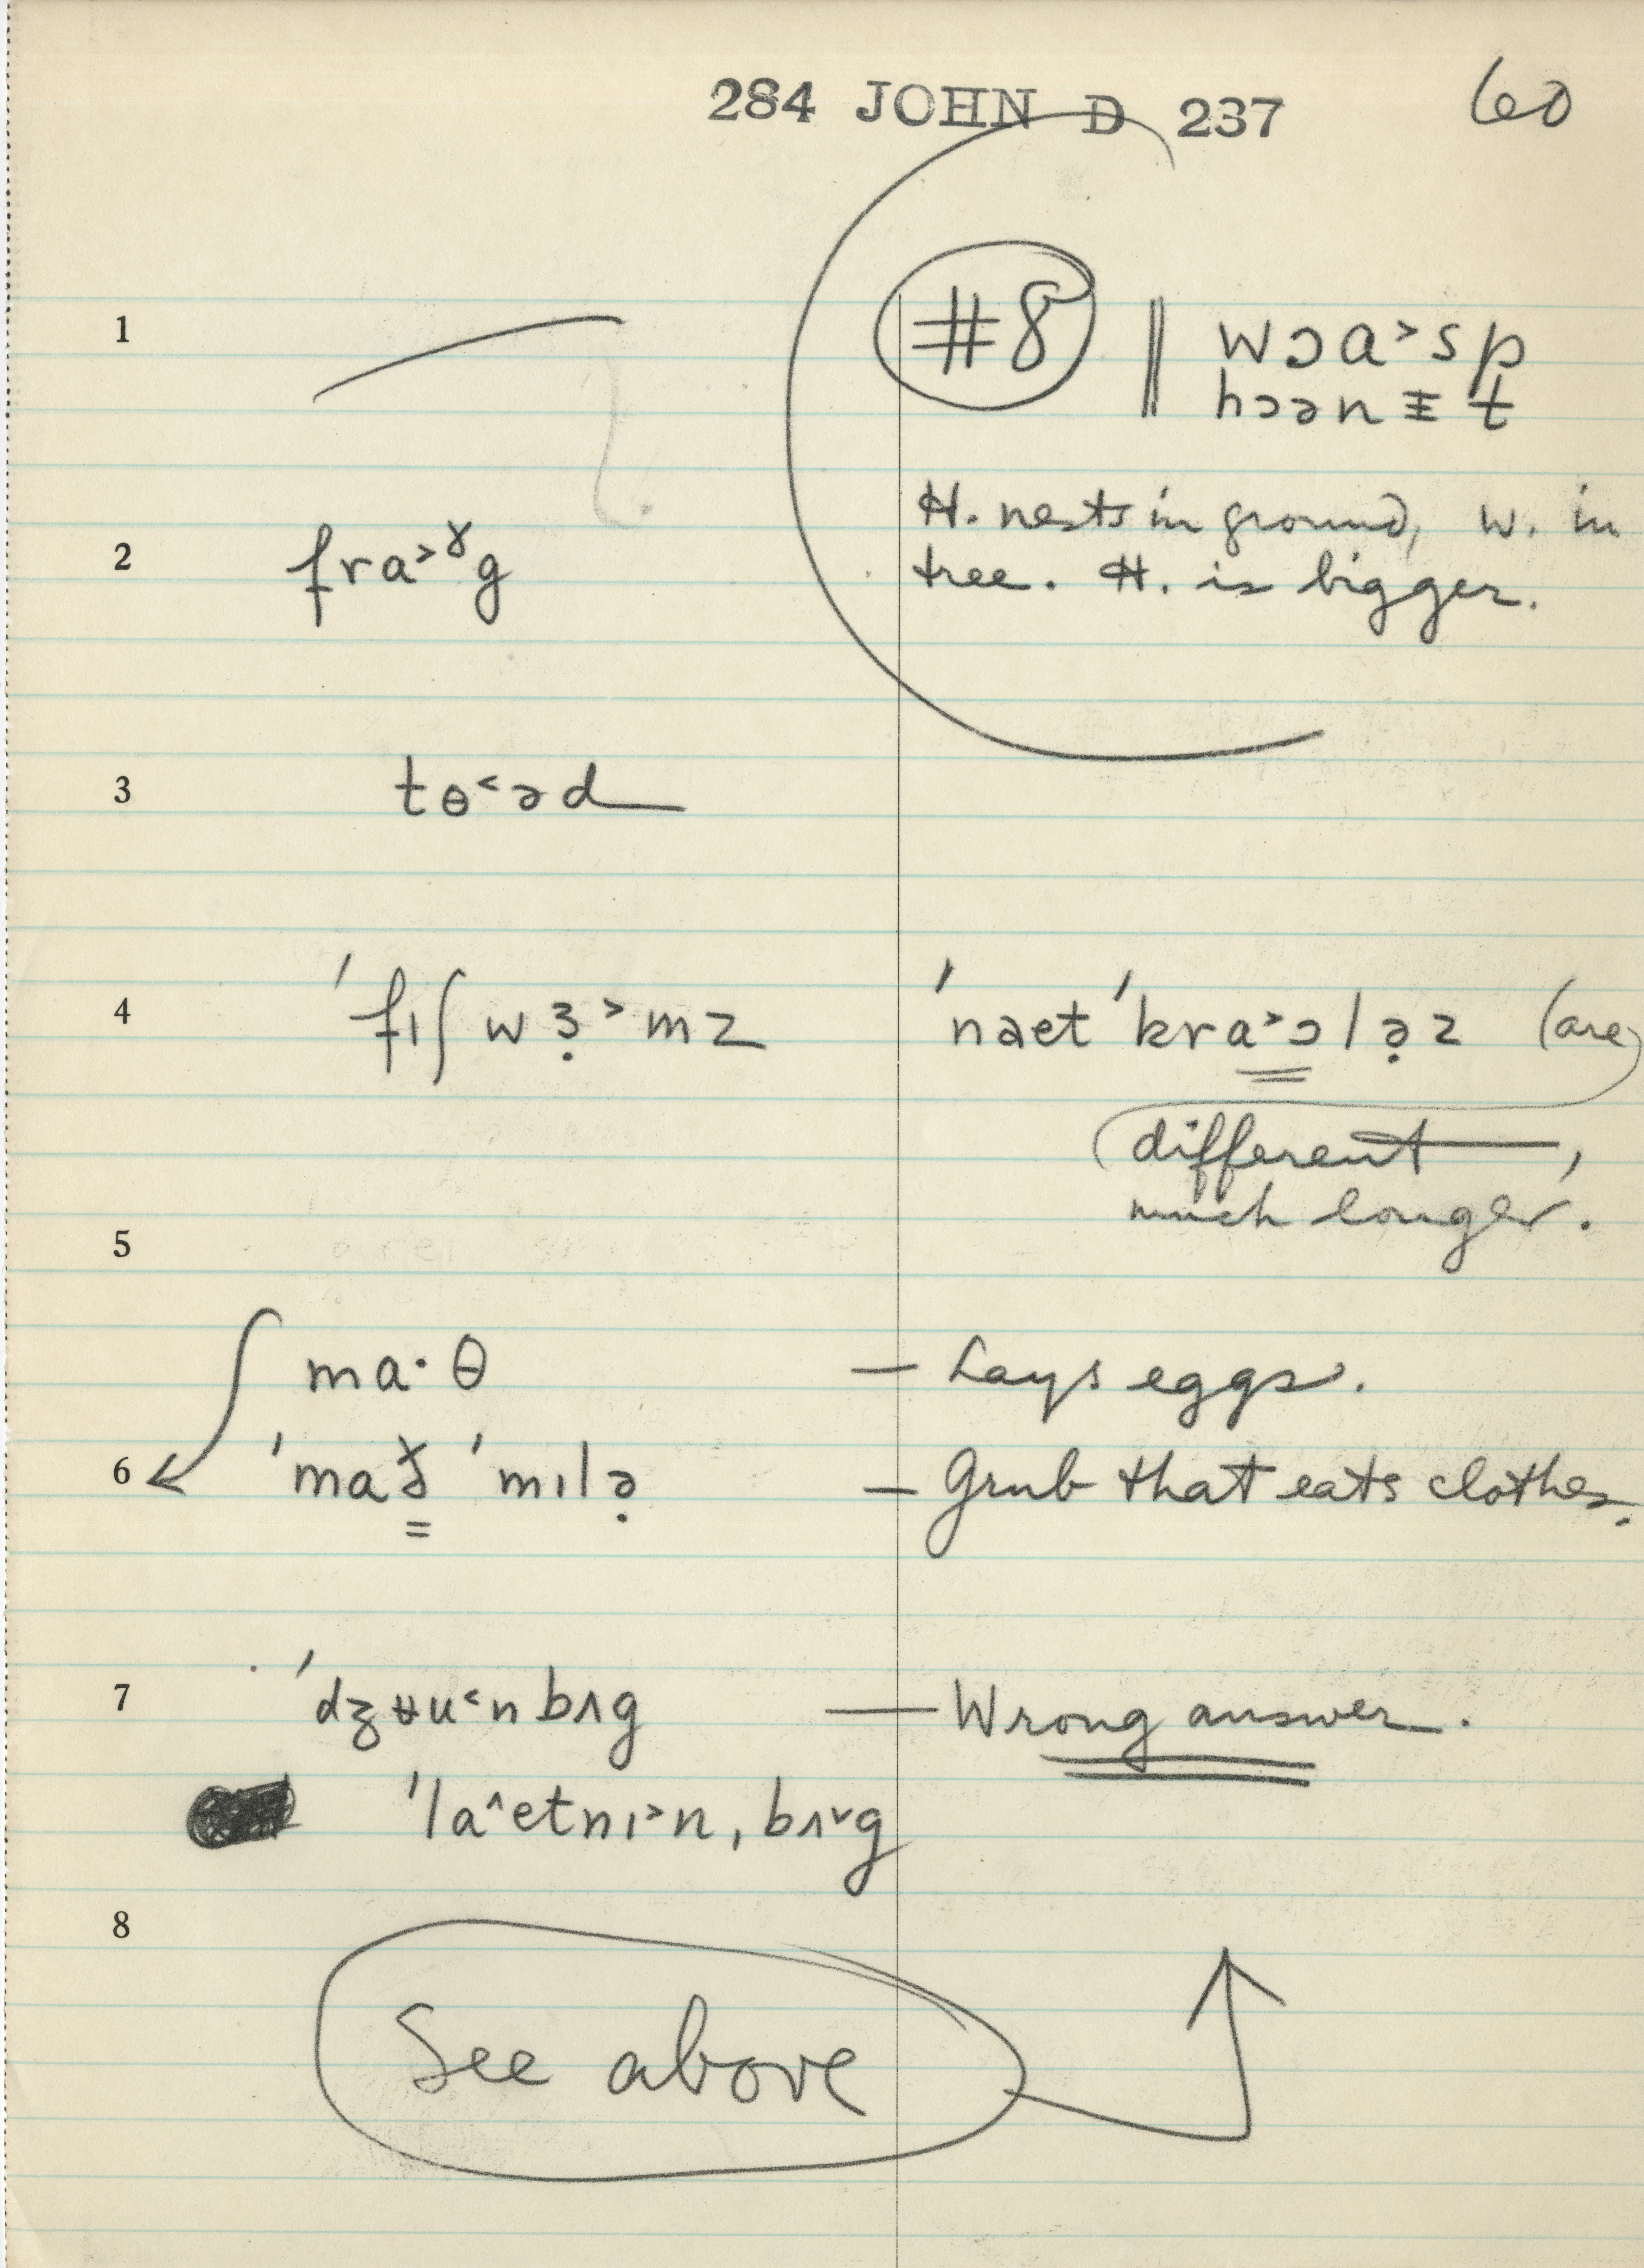 284 JOHN D 237 60
1 #8 ‖ wɔa˃sp
hɔənᵻt
H. nests in ground, w. in
2 fra˃ˠg tree. H. is bigger.
3 tɵ˂əd
4 ˈfɪʃwɜ̣˃mz ˈnaetˈkra˃ɔlə̣z (are
different,
much longer.
5
ma·θ — Lays eggs.
6 ˈmaɣ̳ ˈmɪlə̣ — Grub that eats clothes.
7 ˈdʒʉu˂nbʌg — Wrong answer.
ˈla˄etnɪ˃n,bʌ˅g
8
See above